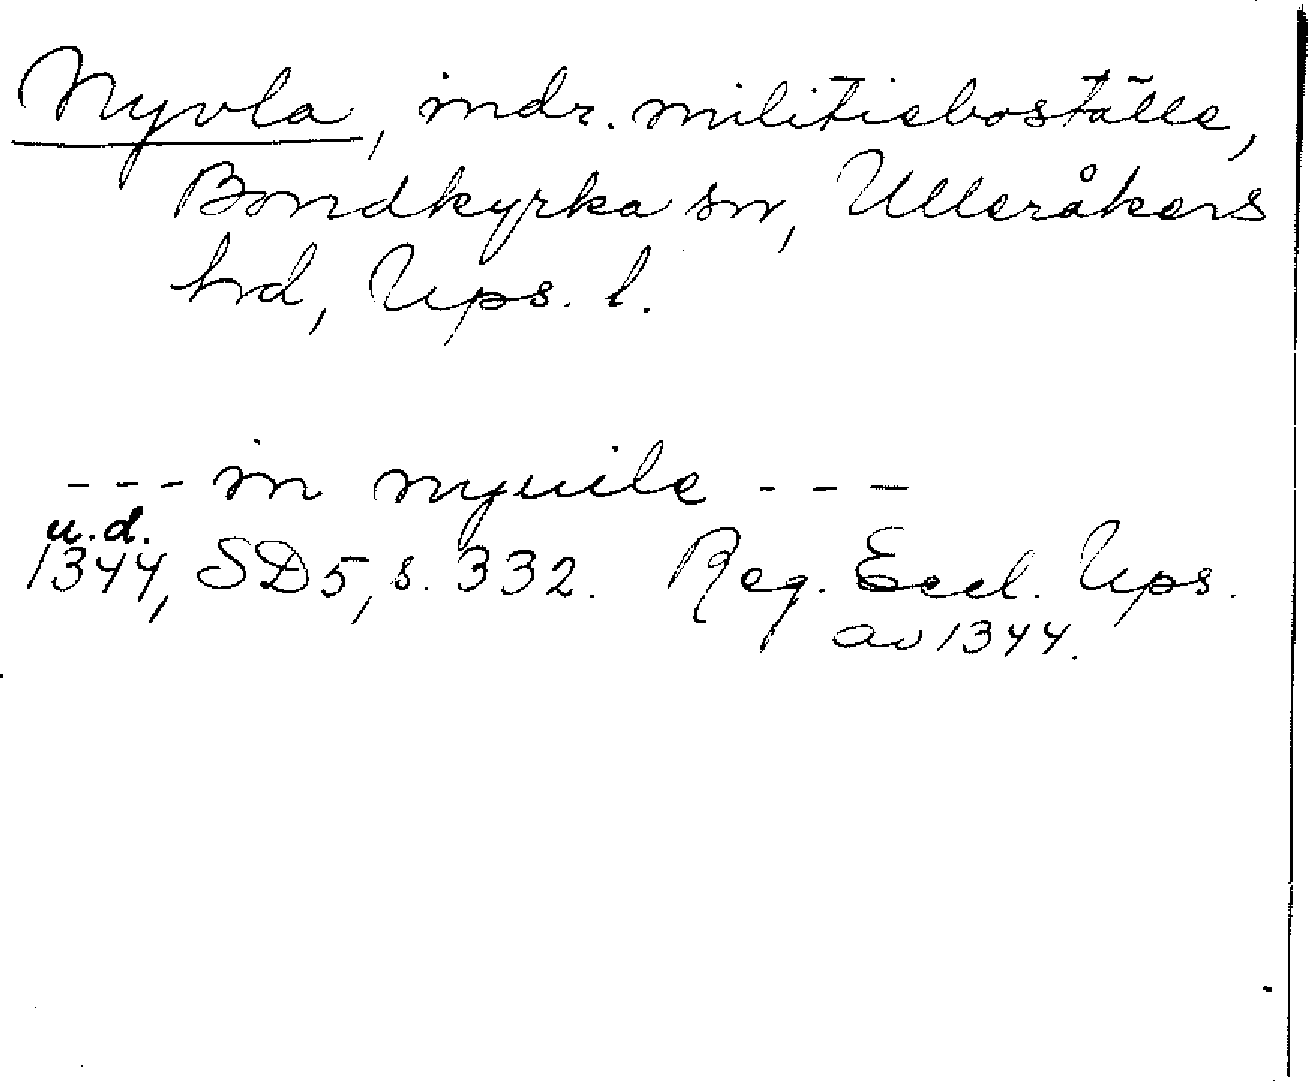 Nyvla, indr. militieboställe,
Bondkyrka sn, Ulleråkers
hd, Ups. l.
--- in nyuile ---
u.d.
1344, SD5, s. 332. Reg. Eccl. Ups.
av 1344.